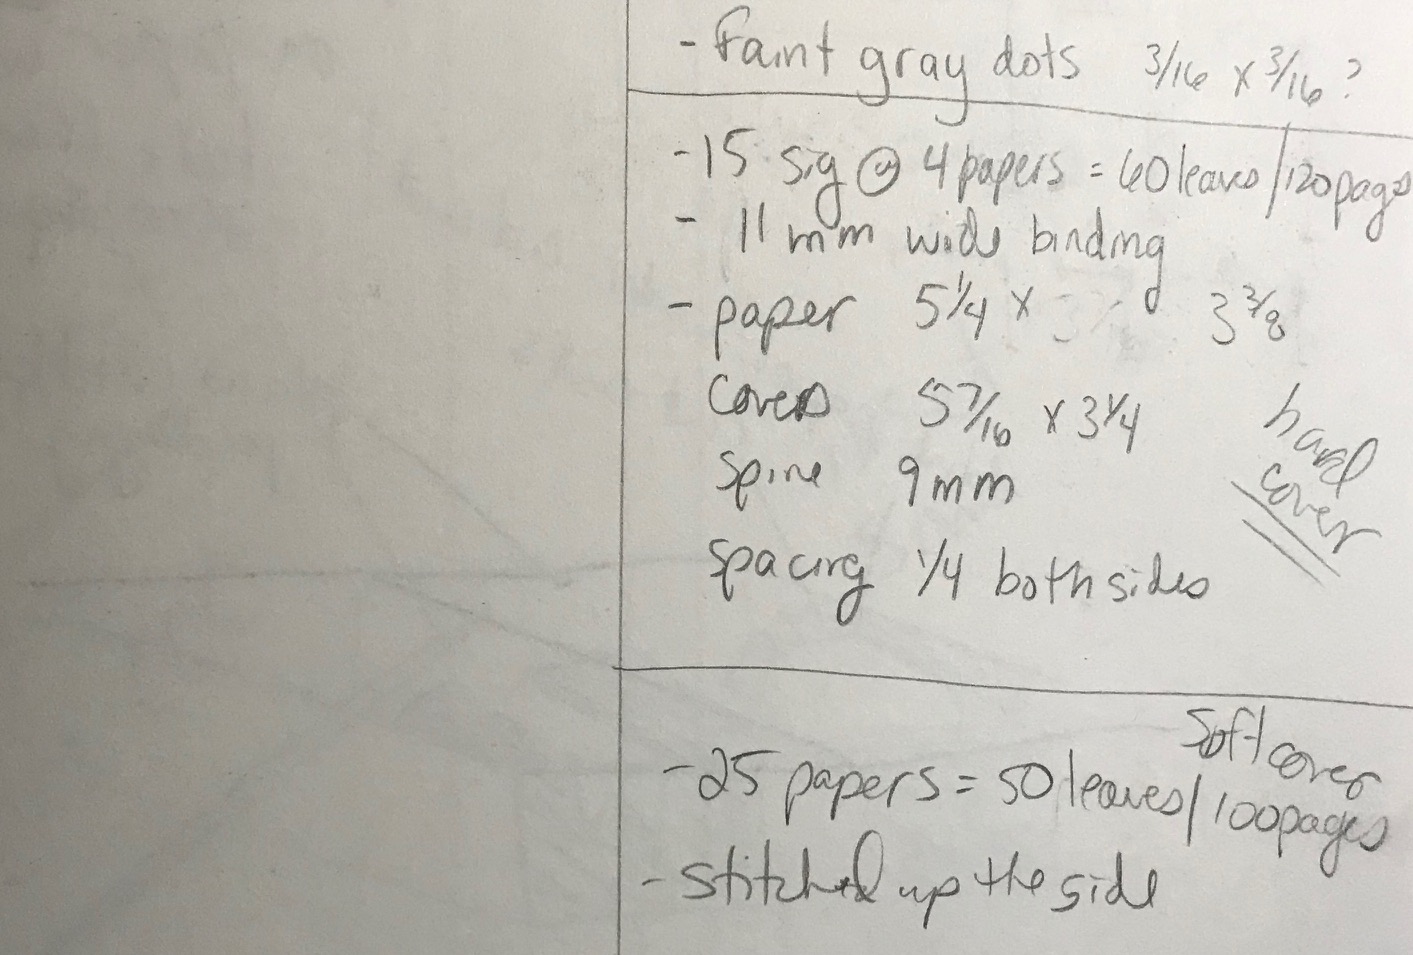 - Faint gray dots 3/16 x 3/16?
- 15 sig @ 4 papers = 60 leaves/120 pages
- 11 mm wide binding
- paper 5 1/4 x 3 3/8
Covers 5 7/16 x 3 1/4
Spine 9mm
Spacing 1/4 both sides
hard
cover
Soft cover
- 25 papers = 50 leaves/100 pages
- stitched up the side